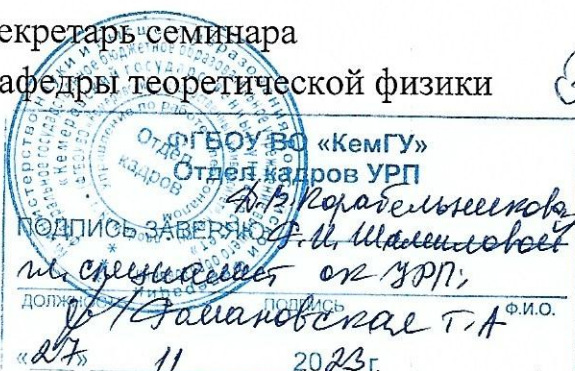 екретарь семинара
афедры теоретической физики
ФГБОУ ВО «КемГУ»
Отдел кадров УРП
Д.В. Корабельникова
ПОДПИСЬ ЗАВЕРЯЮ Г.И. Шамиловой
гл. специалист ОК УРП;
должность подпись Ф.И.О.
Романовская Т.А
«27» 11 2023 г.
Отдел
кадров